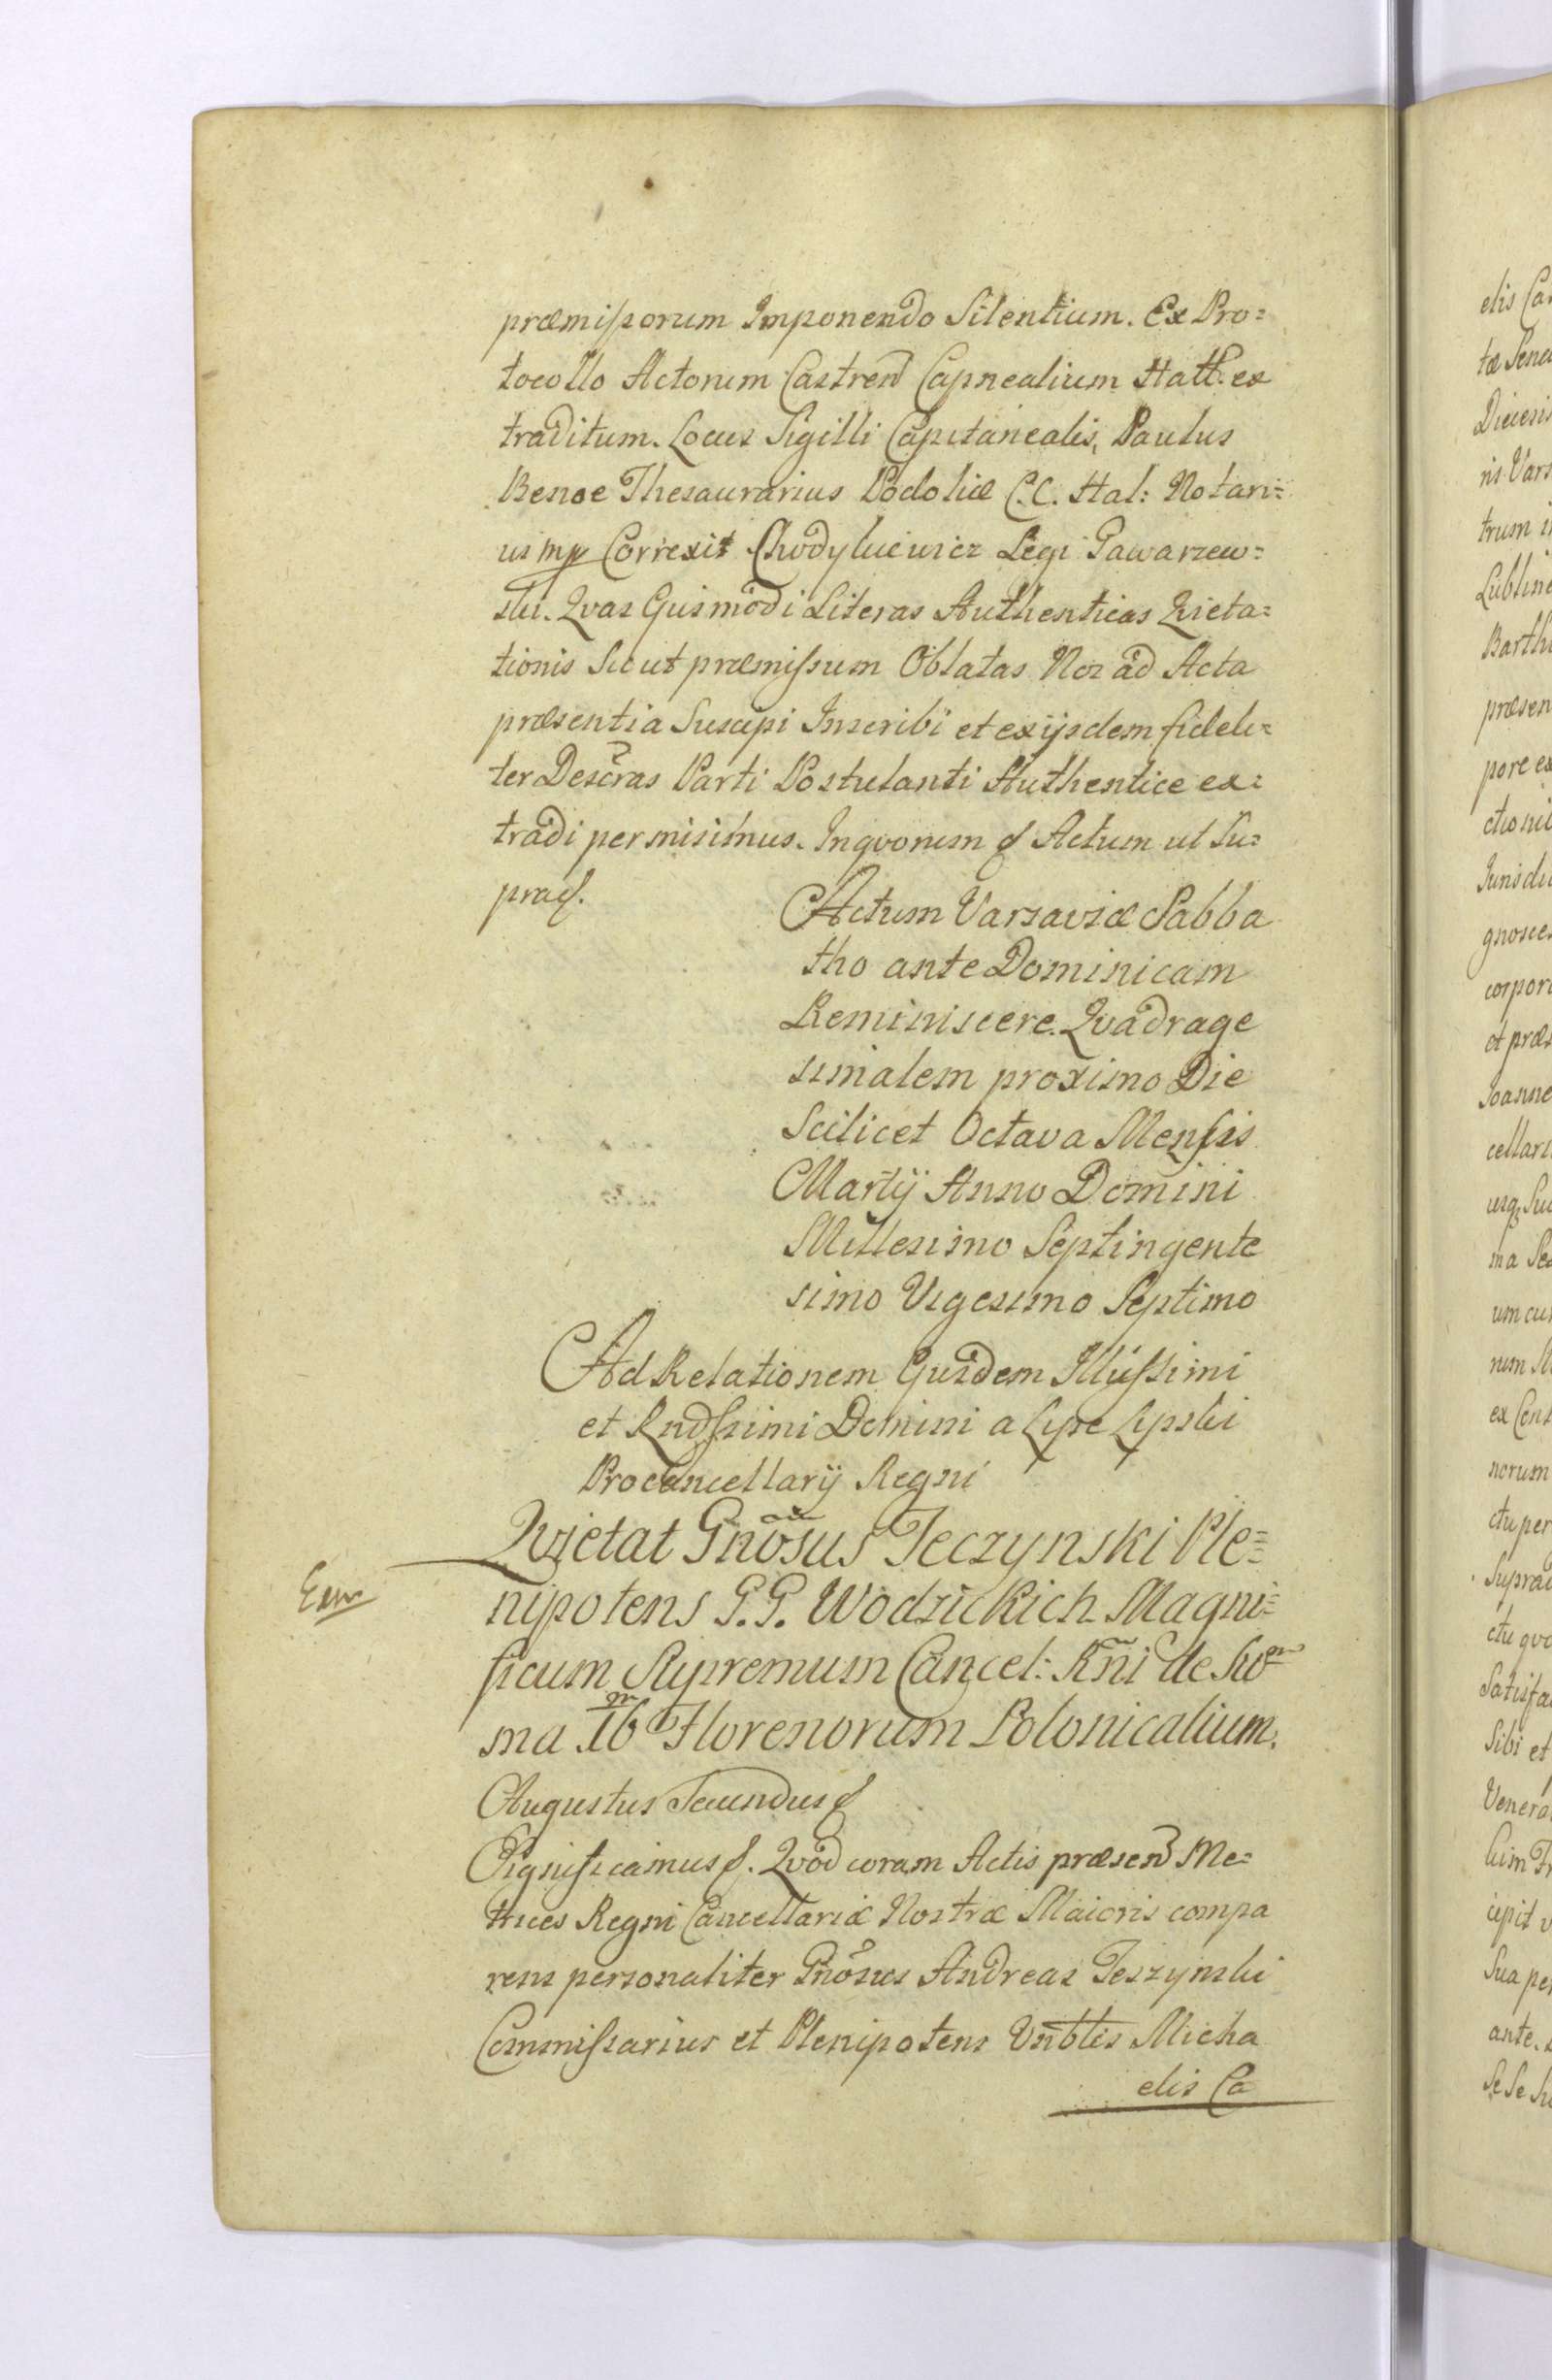 præmissorum Imponendo Silentium. Ex Pro=
tocollo Actorum Castren Capnealium Hall: ex
traditum. Locus Sigilli Capitanealis, Paulus
Benoe Thesaurarius Podoliæ C.C. Hal: Notari=
us mp Correxit Chodylucwicz Legi Gawarzew=
ski. Qvas Gusmodi Literas Authenticas Qvieta=
tionis Sicut præmissum Oblatas Nos ad Acta
præsentia Suscipi Inscribi et ex ijsdem fideli=
ter Descras Parti Postulanti Authentice ex=
tradi permisimus. Inqvorum & Actum ut Su=
pra &.
Actum Varsaviæ Sabba
tho ante Dominicam
Reminiscere Qvadrage
simalem proximo Die
Scilicet Octava Mensis
Martij Anno Domini
Millesimo Septingente
simo Vigesimo Septimo
Ad Relationem Gusdem Illussimi
et Rndssimi Domini a Lipe Lipski
Procancellarij Regni
Qvietat Gnosus Teczynski Ple=
nipotens G.G. Wodzickich Magni=
ficum Supremum Cancel: Rni de Su
ma 16 Florenorum Polonicalium.
Augustus Secundus &
Significamus &. Qvod coram Actis præsen Me=
trices Regni Cancellariæ Nostræ Maioris compa
rens personaliter Gnosus Andreas Teszynski
Commissarius et Plenipotens Vnblis Micha
elis Ca
elis Ca